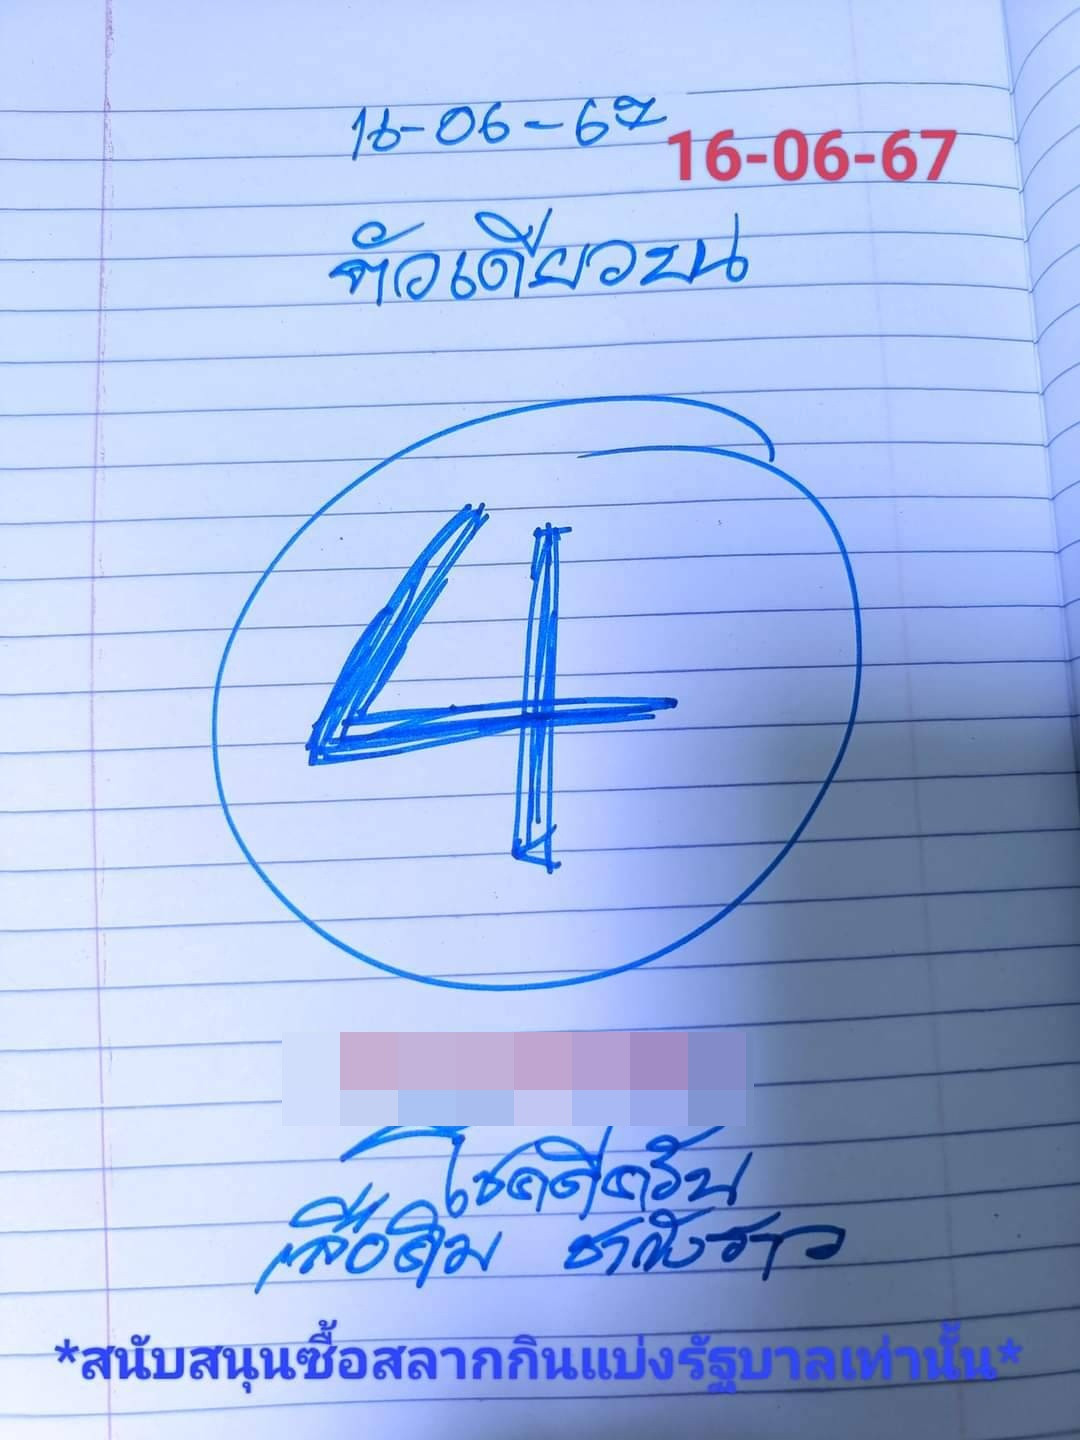 16-06-67
16-06-67
ตัวเดียวบน
4
โชคดีครับ
*สนับสนุนซื้อสลากกินแบ่งรัฐบาลเท่านั้น*